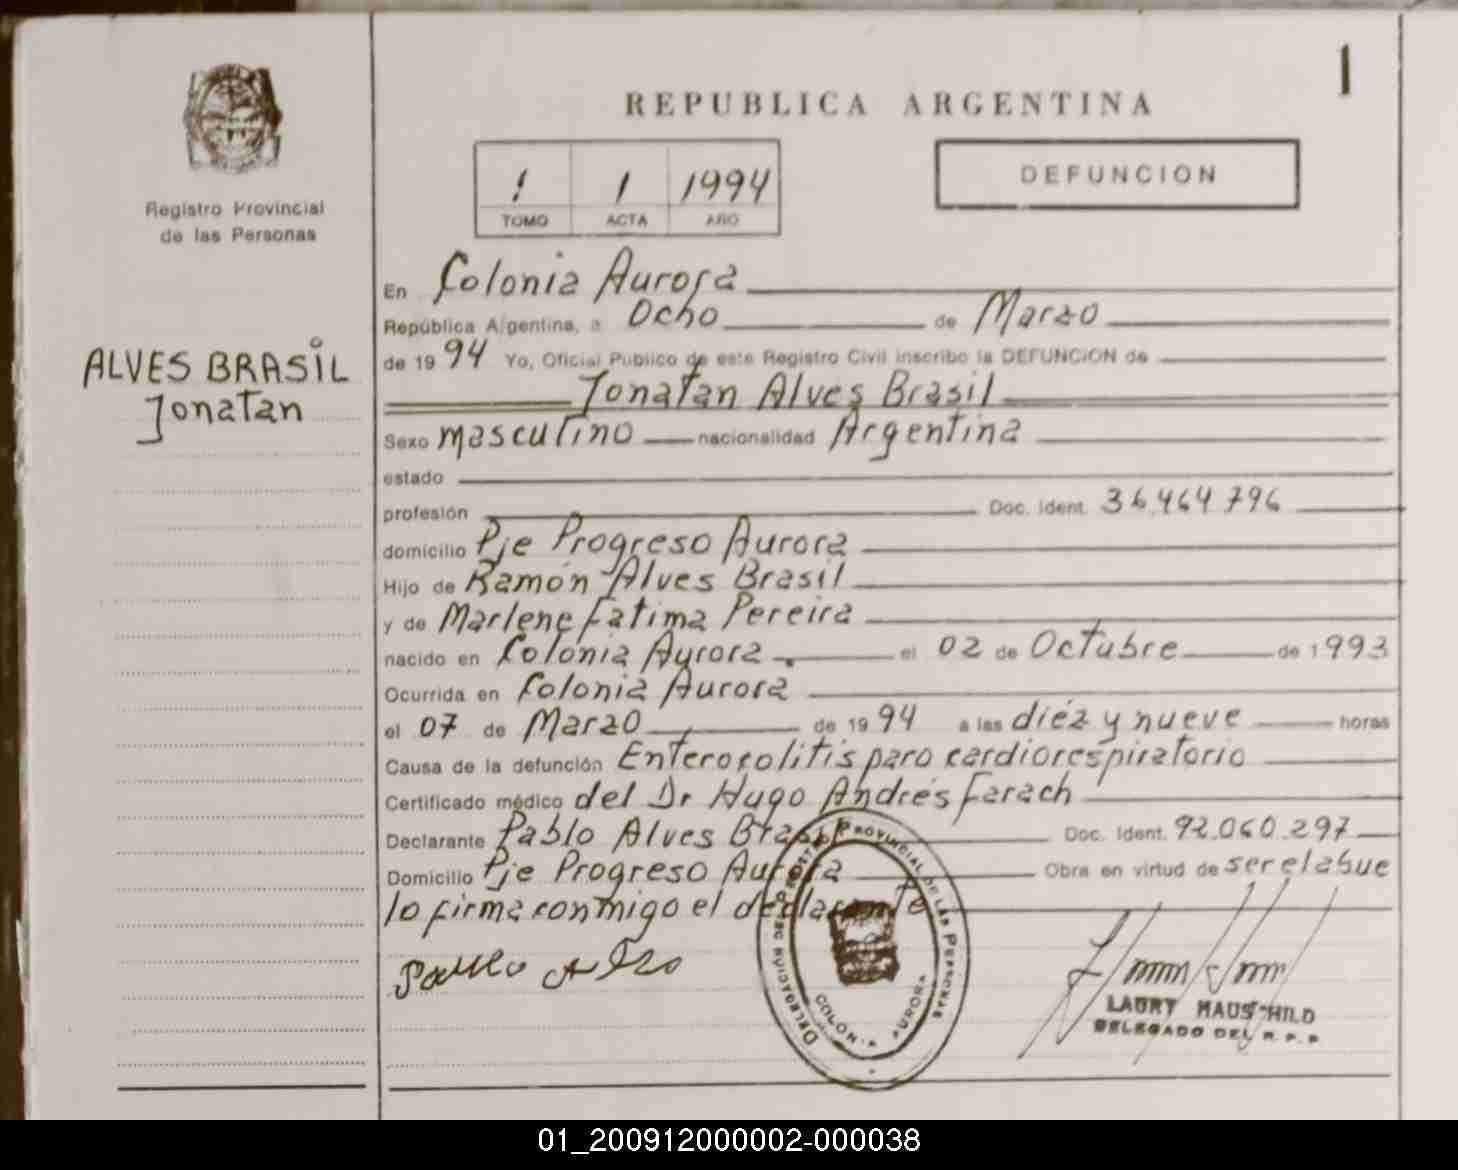 1
REPUBLICA ARGENTINA
1 1 1994
TOMO ACTA AÑO
DEFUNCION
Registro Provincial
de las Personas
ALVES BRASIL
Jonatan
En Colonia Aurora
República Argentina, a Ocho de Marzo
de 1994 Yo, Oficial Público de este Registro Civil inscribo la DEFUNCION de
Jonatan Alves Brasil
Sexo masculino nacionalidad Argentina
estado
profesión Doc. Ident. 36.464 796
domicilio Pje Progreso Aurora
Hijo de Ramón Alves Brasil
y de Marlene Fatima Pereira
nacido en Colonia Aurora. el 02 de Octubre de 1993
Ocurrida en Colonia Aurora
el 07 de Marzo de 1994 a las diéz y nueve horas
Causa de la defunción Enterocolitis paro cardiorespiratorio
Certificado médico del Dr Hugo Andrés Farach
Declarante Pablo Alves Brasil Doc. Ident. 92.060.297
Domicilio Pje Progreso Aurora Obra en virtud de ser elabue
lo firma conmigo el declarante
DELEGACION DEL REGISTRO PROVINCIAL DE LAS PERSONAS
COLONIA AURORA
LAURY HAUSCHILD
DELEGADO DEL R. P. P.
01_200912000002-000038